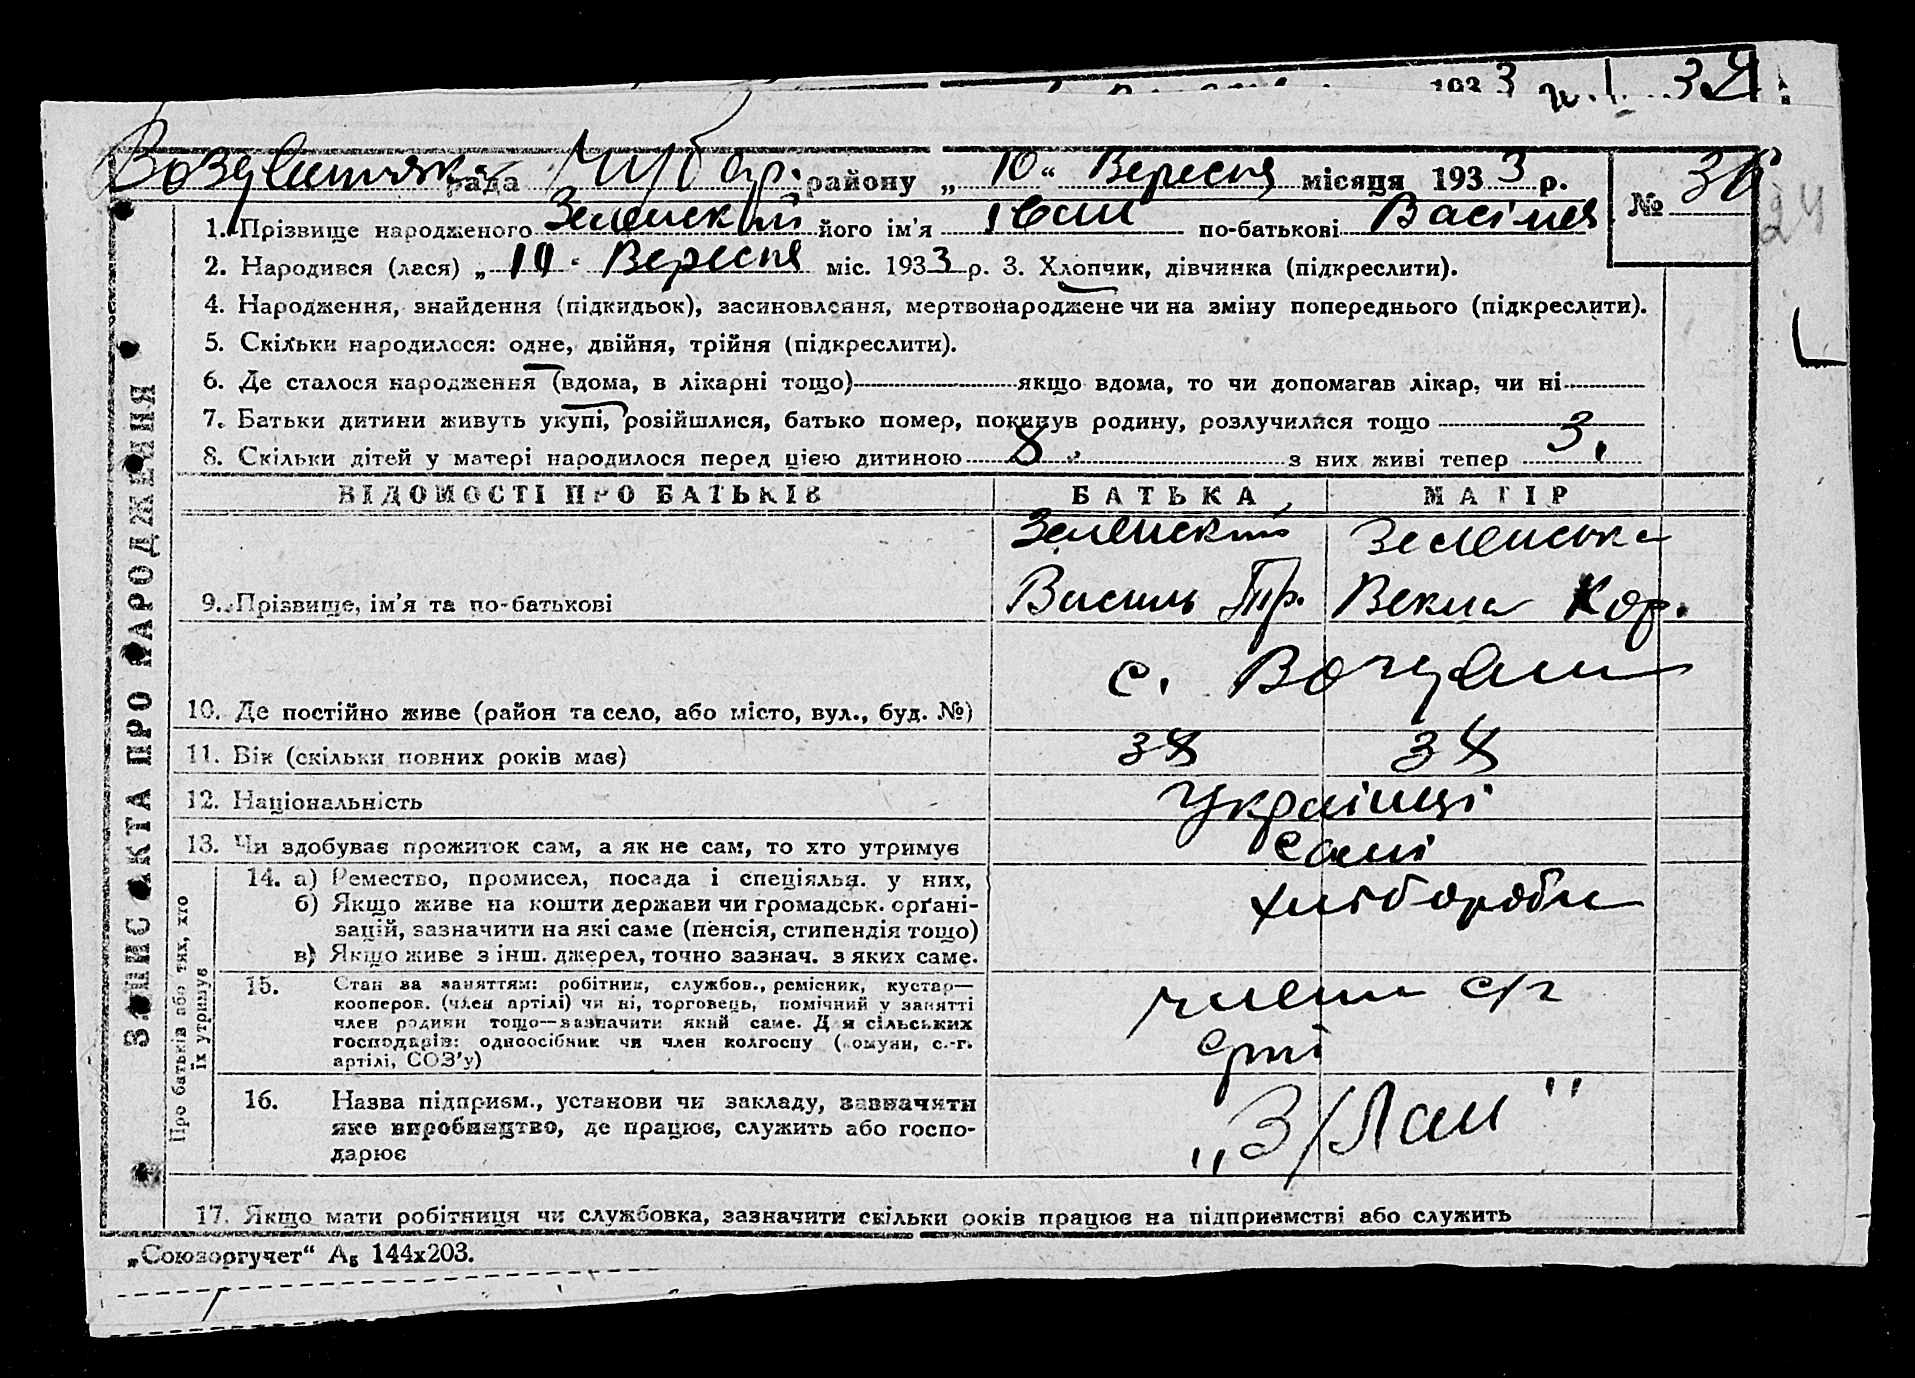 1933
рада Чубар. району „ 10 " Вересня місяця 1933 р.
№ 36
24
1. Прізвище народженого Зеленский його ім'я Іван по-батькові Васілів
2. Народився (лася) „ 10 " Вересня міс. 1933 р. 3. Хлопчик, дівчинка (підкреслити).
4. Народження, знайдення (підкидьок), засиновлення, мертвонароджене чи на зміну попереднього (підкреслити).
5. Скільки народилося: одне, двійня, трійня (підкреслити).
6. Де сталося народження (вдома, в лікарні тощо) якщо вдома, то чи допомагав лікар, чи ні
7. Батьки дитини живуть укупі, розійшлися, батько помер, покинув родину, розлучилися тощо
8. Скільки дітей у матері народилося перед цією дитиною 8. з них живі тепер 3.
ВІДОМОСТІ ПРО БАТЬКІВ БАТЬКА МАТІР
Зеленский Зеленська
9. Прізвище, ім'я та по-батькові Василь Тр. Векла Кор.
10. Де постійно живе (район та село, або місто, вул., буд. №) с.
11. Вік (скільки повних років має) 38 38
12. Національність Українці
13. Чи здобуває прожиток сам, а як не сам, то хто утримує самі
14. а) Ремество, промисел, посада і спеціяльн. у них, хлібороби
б) Якщо живе на кошти держави чи громадськ. орґані-
зацій, зазначити на які саме (пенсія, стипендія тощо)
в) Якщо живе з інш. джерел, точно зазнач. з яких саме.
15. Стан за заняттям: робітник, службов., ремісник, кустар—
кооперов. (член артілі) чи ні, торговець, помічний у занятті
член родини тощо—зазначити який саме. Для сільських
господарів: одноосібник чи член колгоспу (комуни, с.-г.
артілі, СОЗ'у)
члени с/г
16. Назва підприєм., установи чи закладу, зазначити
яке виробництво, де працює, служить або госпо-
дарює
„З/Лан"
17. Якщо мати робітниця чи службовка, зазначити скільки років працює на підприємстві або служить
ЗАПИС АКТА ПРО НАРОДЖЕННЯ
Про батьків або тих, хто
їх утримує
„Союзоргучет" А₅ 144х203.